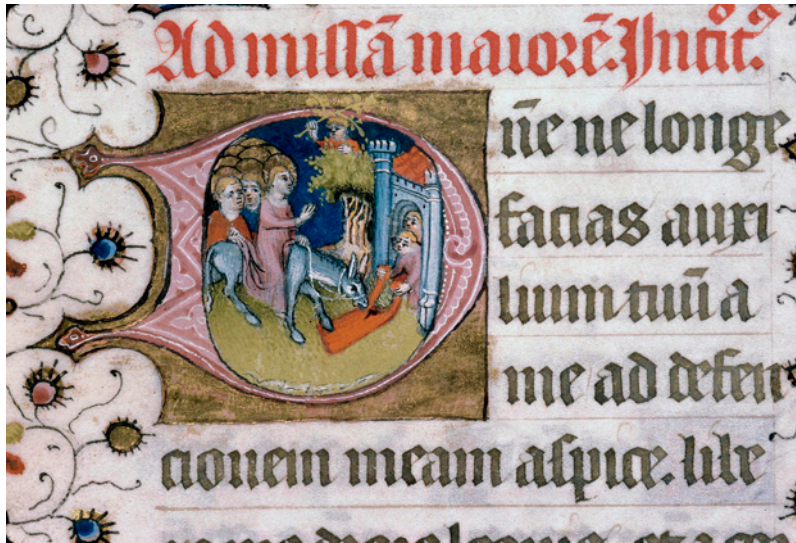 Ad missā maiorē. Introit᷒.
D
n̄e ne longe
facias auxi
lium tuū a
me ad defen
cionem meam aspice. libe